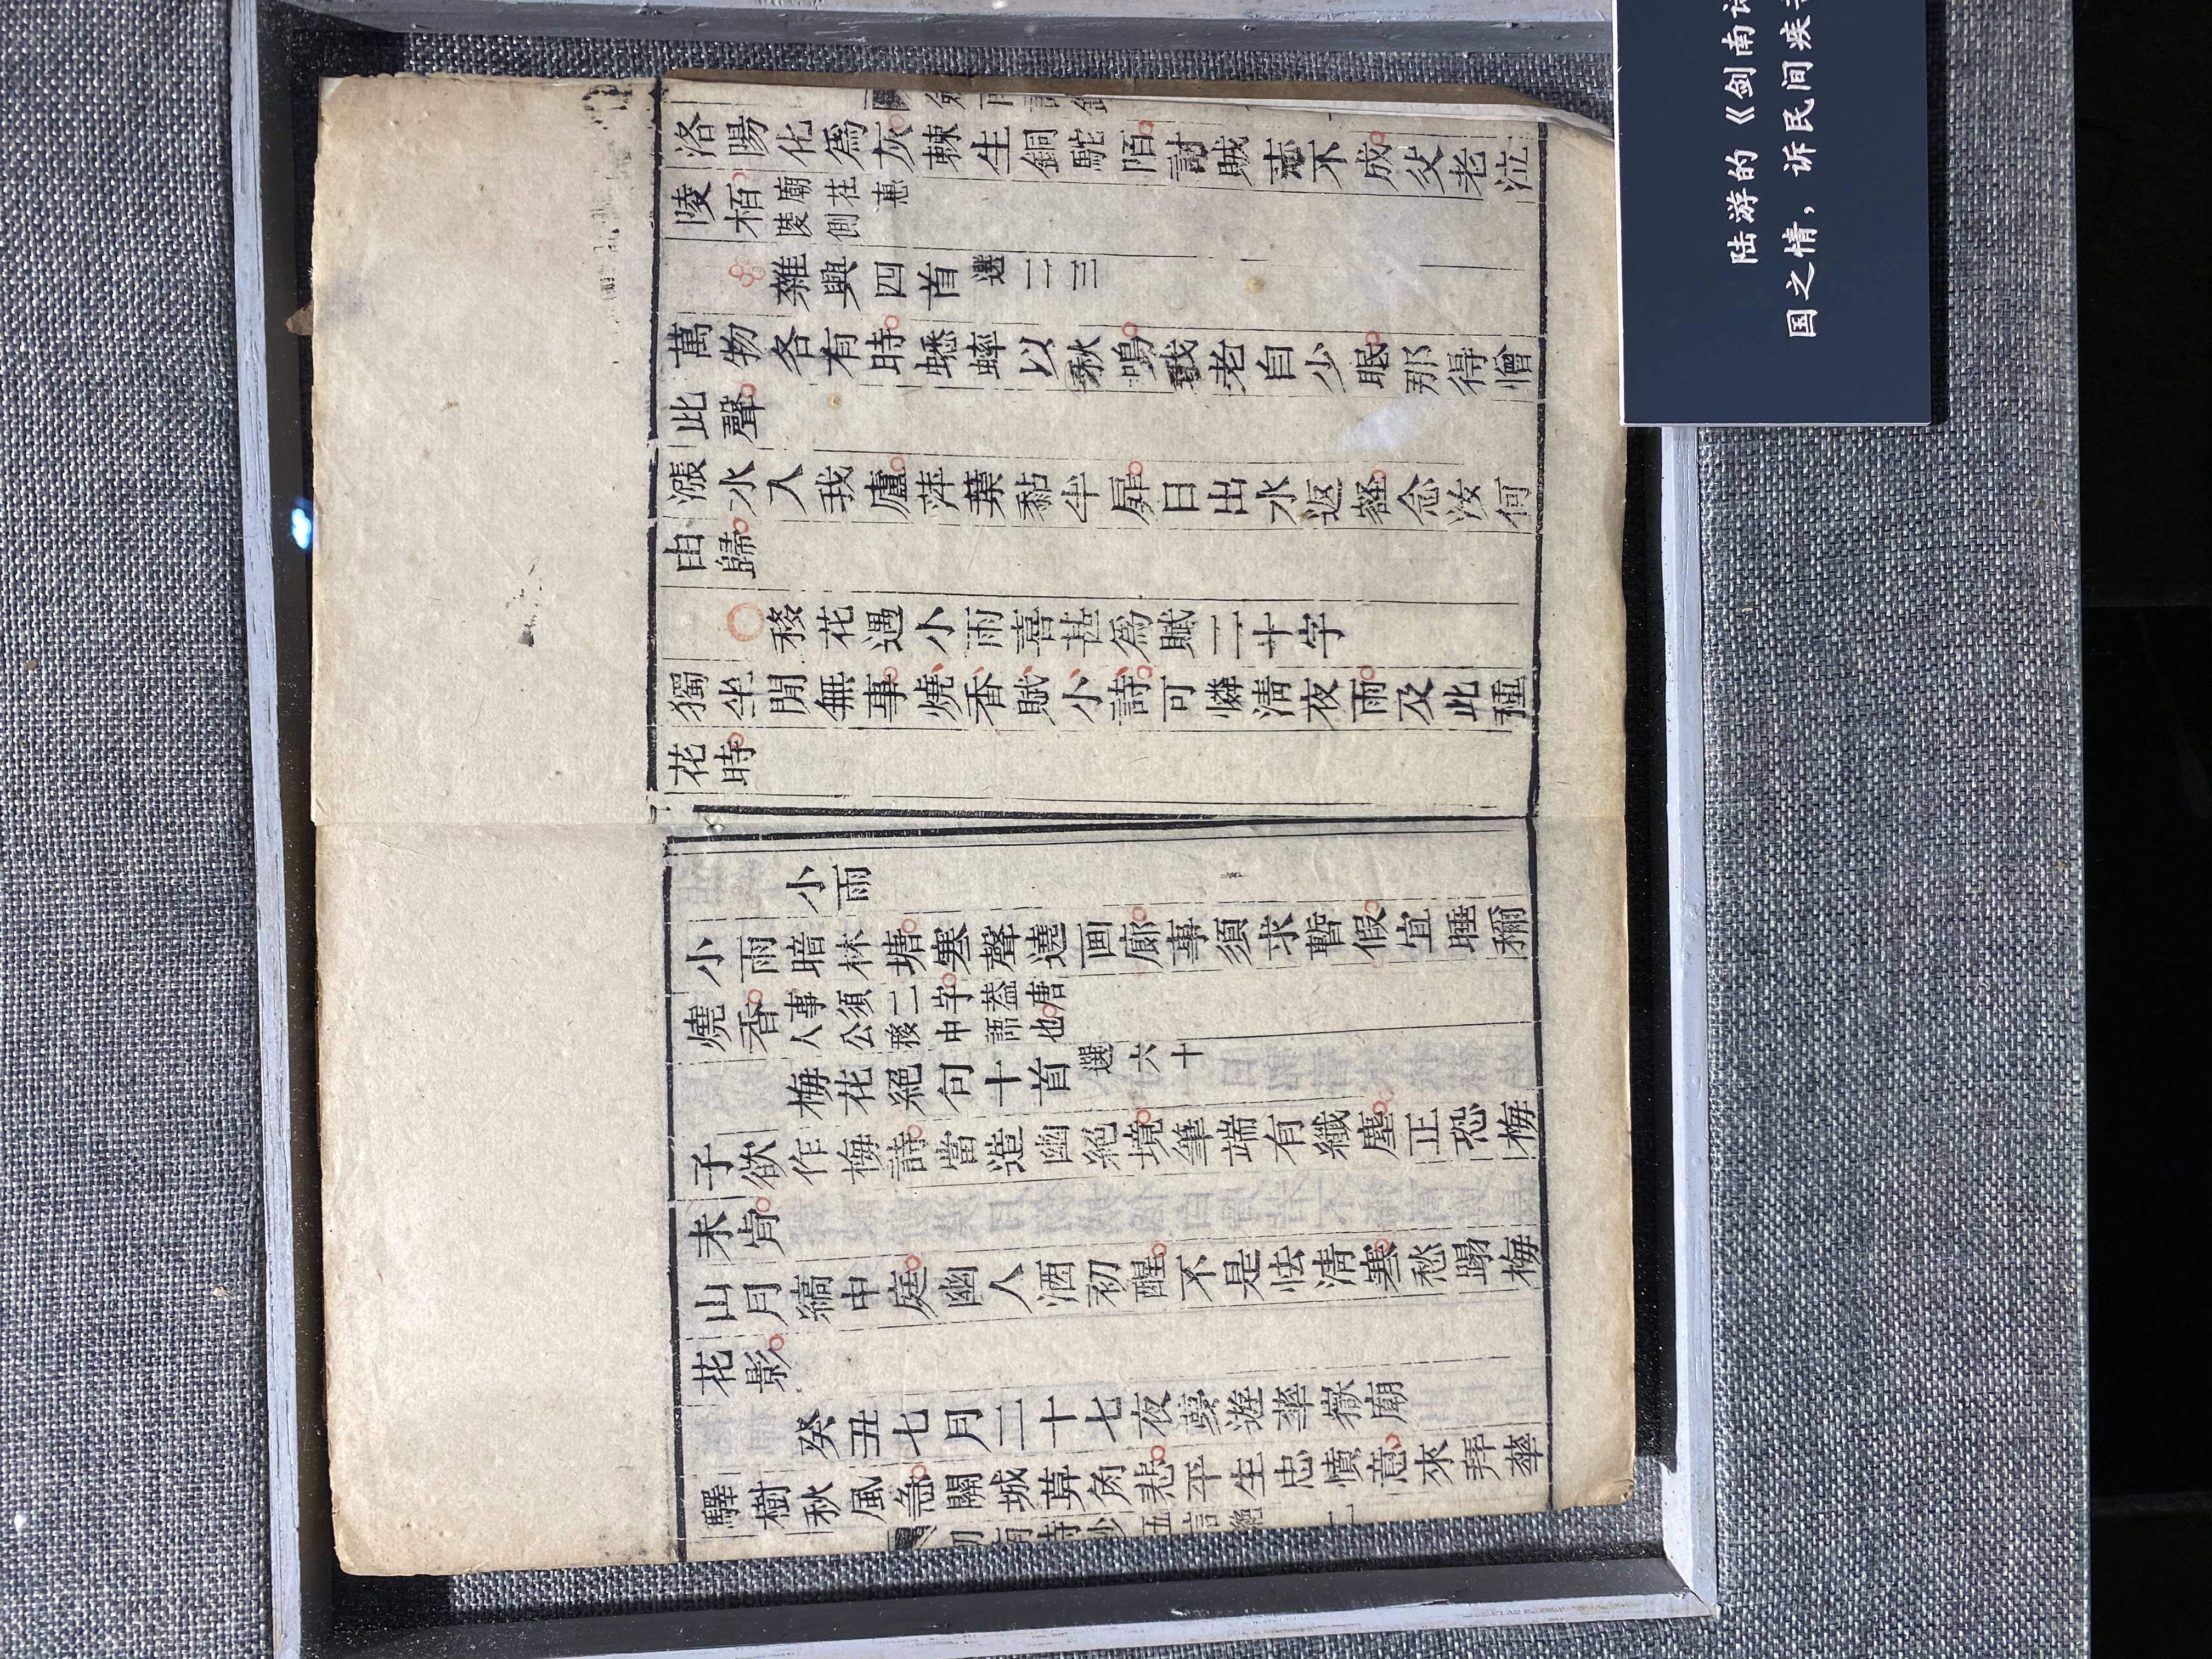 洛陽化爲灰棘生銅駝陌討賊志不成父老泣
陵栢廟在惠陵側
雜興四首選二三
萬物各有時蟋蟀以秋鳴我老自少眠那得憎
此聲
漲水入我廬萍葉黏半扉日出水返壑念汝何
由歸
移花遇小雨喜甚爲賦二十字
獨坐閒無事燒香賦小詩可憐清夜雨及此種
花時
小雨
小雨暗林塘寒聲遶画廊事須求暫假宜睡稱
燒香事須二字葢唐人公移中語也
梅花絕句十首選六十
子欲作梅詩當造幽絕境筆端有纖塵正恐梅
未肯
山月縞中庭幽人酒初醒不是怯清寒愁蹋梅
花影
癸丑七月二十七夜夢遊華嶽廟
驛樹秋風急關城莫角悲平生忠憤意來拜華
陆游的《剑南诗
国之情，诉民间疾